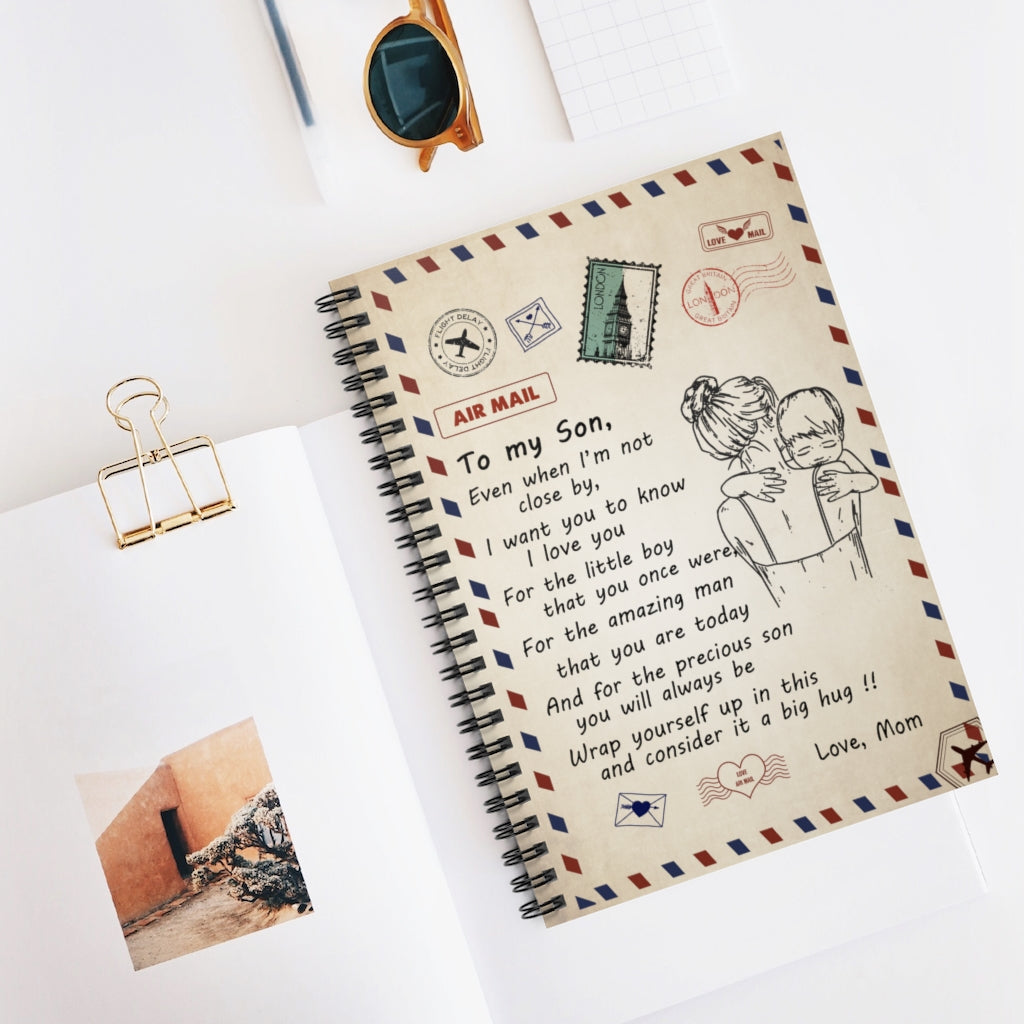 LOVE MAIL
LONDON
GREAT BRITAIN
LONDON
GREAT BRITAIN
FLIGHT DELAY
FLIGHT DELAY
AIR MAIL
To my Son,
Even when I'm not
close by,
I want you to know
I love you
For the little boy
that you once were,
For the amazing man
that you are today
And for the precious son
you will always be
Wrap yourself up in this
and consider it a big hug !!
Love, Mom
LOVE
AIR MAIL